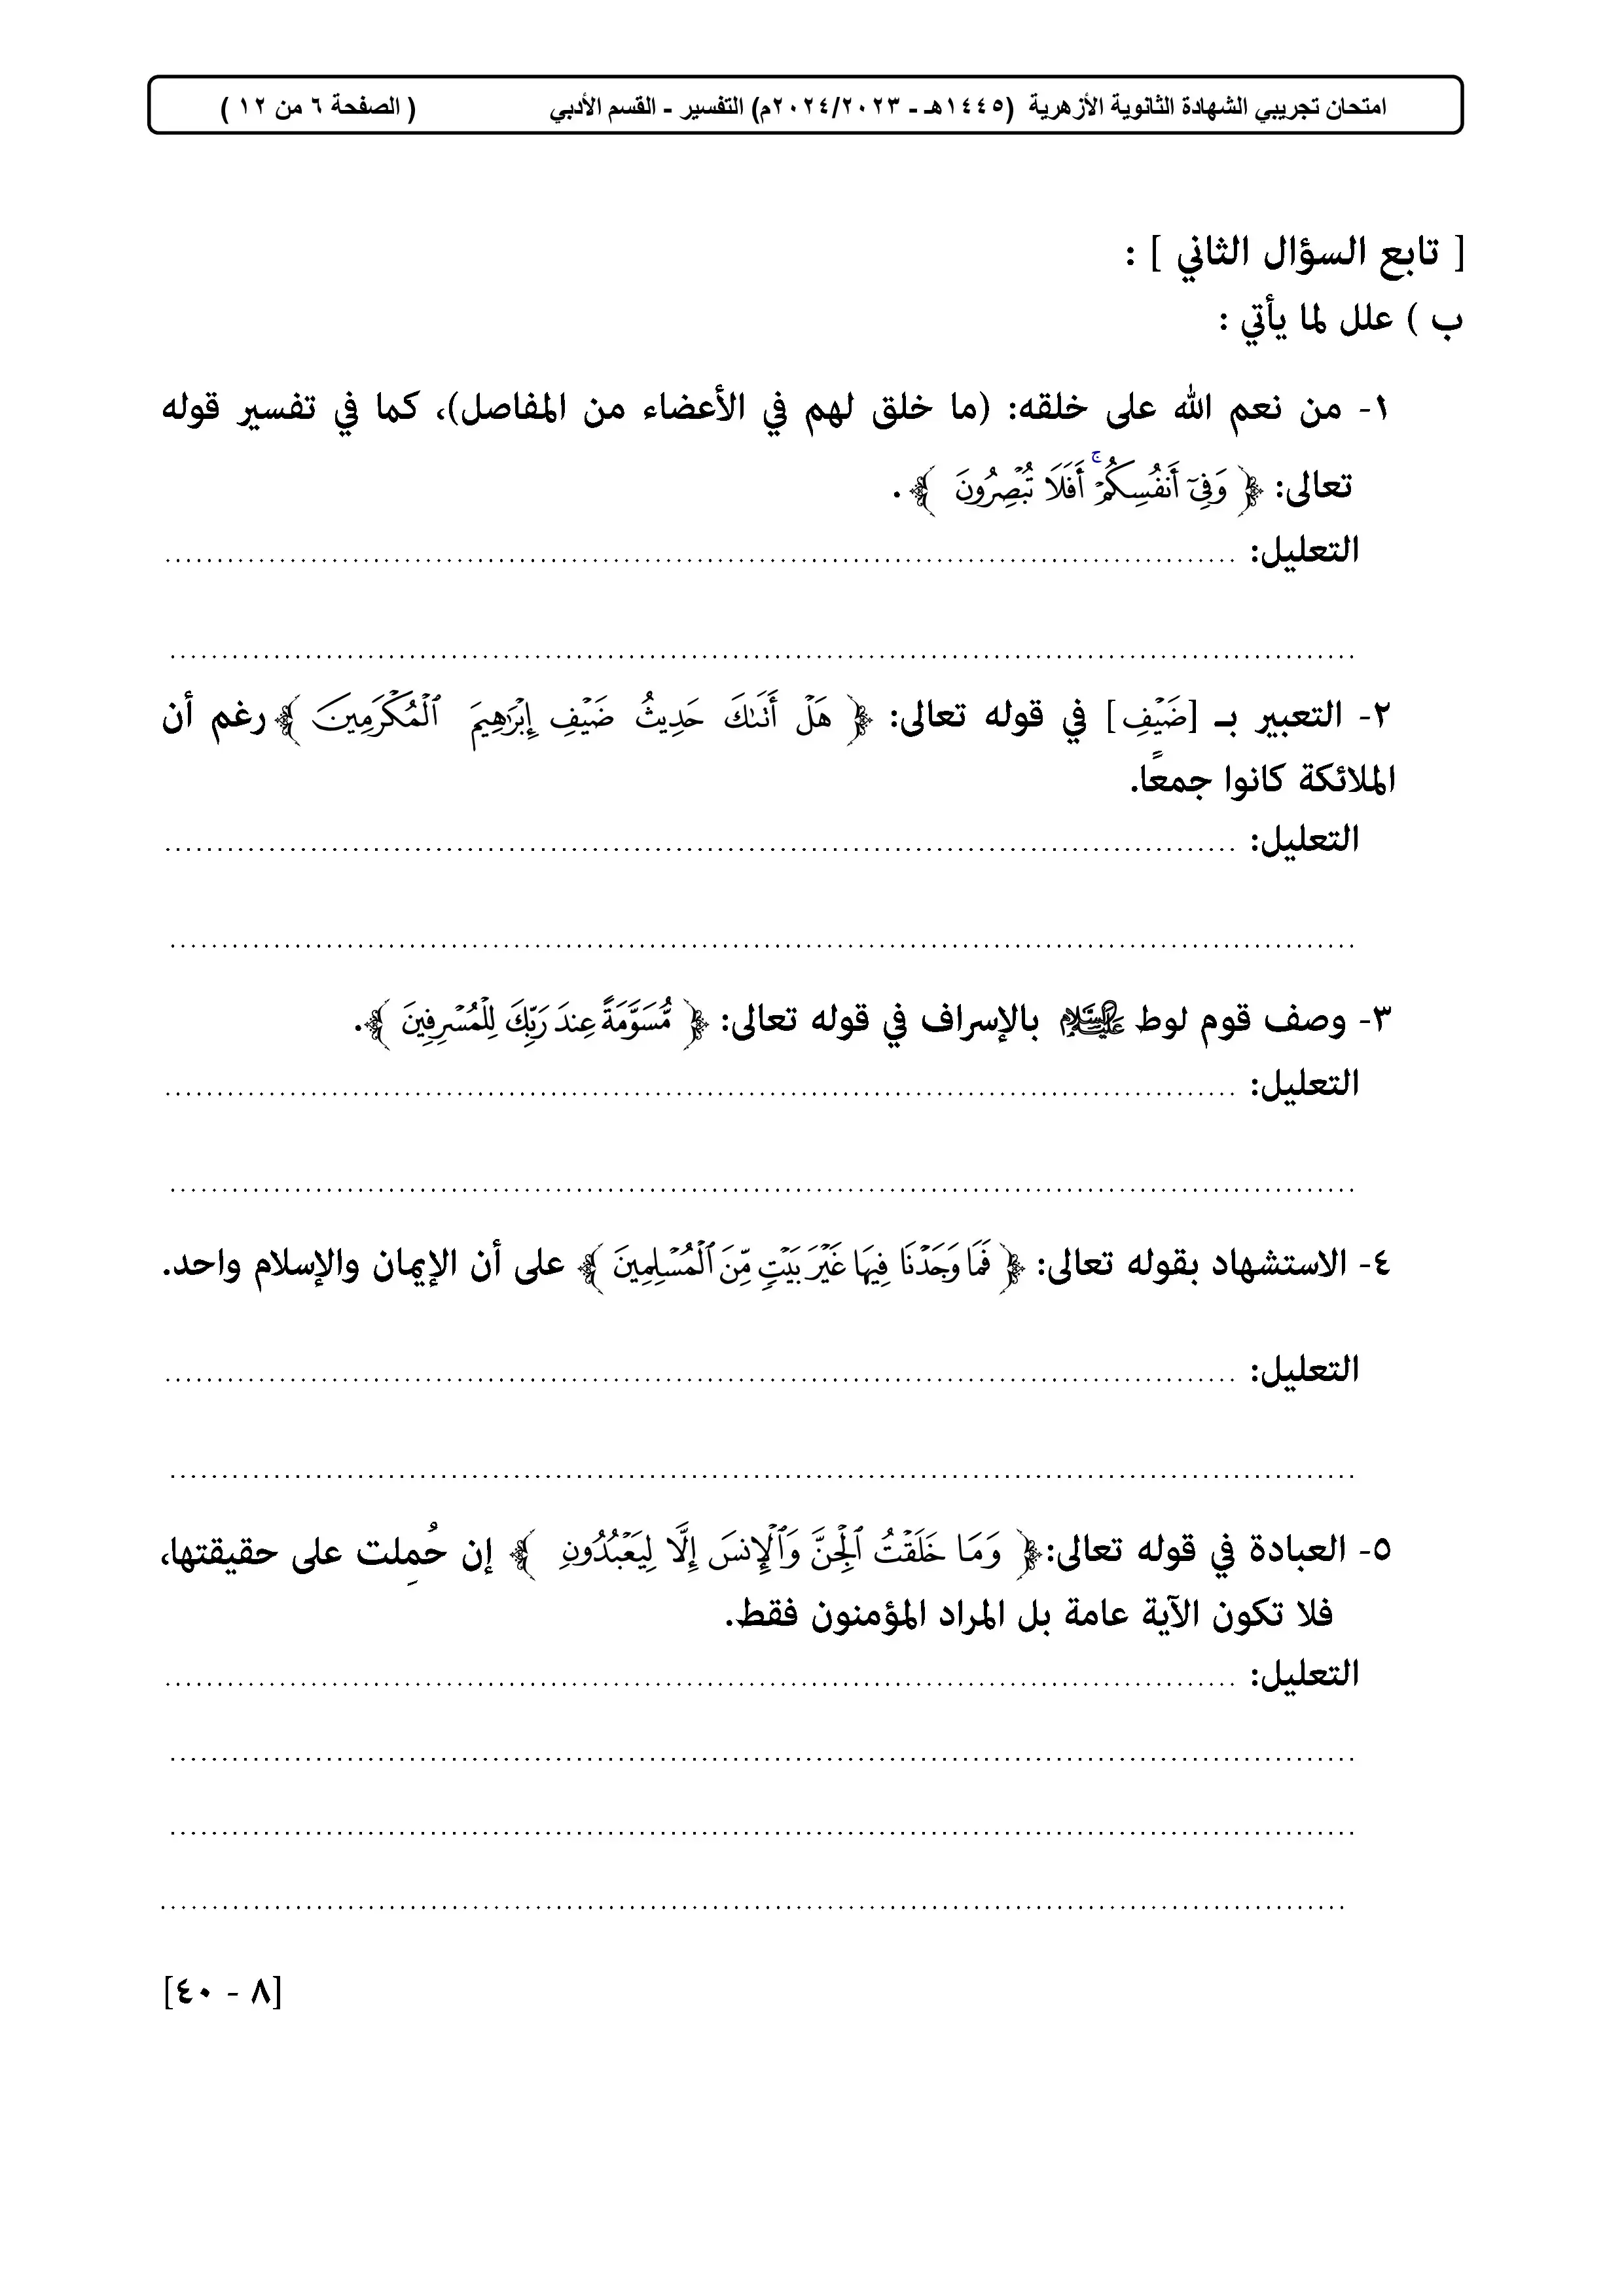 امتحان تجريبي الشهادة الثانوية الأزهرية (١٤٤٥هـ - ٢٠٢٤/٢٠٢٣م) التفسير - القسم الأدبي ( الصفحة ٦ من ١٢ )
[ تابع السؤال الثاني ] :
ب ) علل لما يأتي :
١- من نعم الله على خلقه: (ما خلق لهم في الأعضاء من المفاصل)، كما في تفسير قوله
تعالى: ﴿ وَفِيٓ أَنفُسِكُمۡۚ أَفَلَا تُبۡصِرُونَ ﴾ .
التعليل: ........................................................................
........................................................................
٢- التعبير بـ [ضَيۡفِ] في قوله تعالى: ﴿ هَلۡ أَتَىٰكَ حَدِيثُ ضَيۡفِ إِبۡرَٰهِيمَ ٱلۡمُكۡرَمِينَ ﴾ رغم أن
الملائكة كانوا جمعًا.
التعليل: ........................................................................
........................................................................
٣- وصف قوم لوط عليه السلام بالإسراف في قوله تعالى: ﴿ مُّسَوَّمَةً عِندَ رَبِّكَ لِلۡمُسۡرِفِينَ ﴾.
التعليل: ........................................................................
........................................................................
٤- الاستشهاد بقوله تعالى: ﴿ فَمَا وَجَدۡنَا فِيهَا غَيۡرَ بَيۡتٖ مِّنَ ٱلۡمُسۡلِمِينَ ﴾ على أن الإيمان والإسلام واحد.
التعليل: ........................................................................
........................................................................
٥- العبادة في قوله تعالى:﴿ وَمَا خَلَقۡتُ ٱلۡجِنَّ وَٱلۡإِنسَ إِلَّا لِيَعۡبُدُونِ ﴾ إن حُمِلت على حقيقتها،
فلا تكون الآية عامة بل المراد المؤمنون فقط.
التعليل: ........................................................................
........................................................................
........................................................................
........................................................................
[٨ - ٤٠]